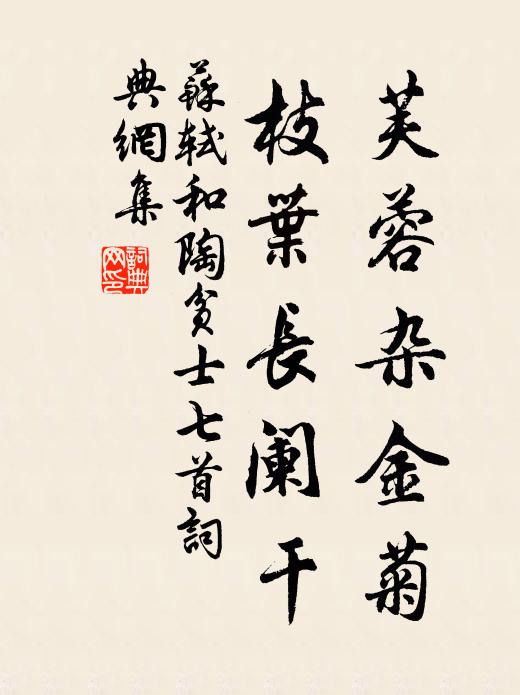 芙蓉杂金菊
枝葉長阑干
蘇軾和陶貧士七首詞
典網集
詞典
网印